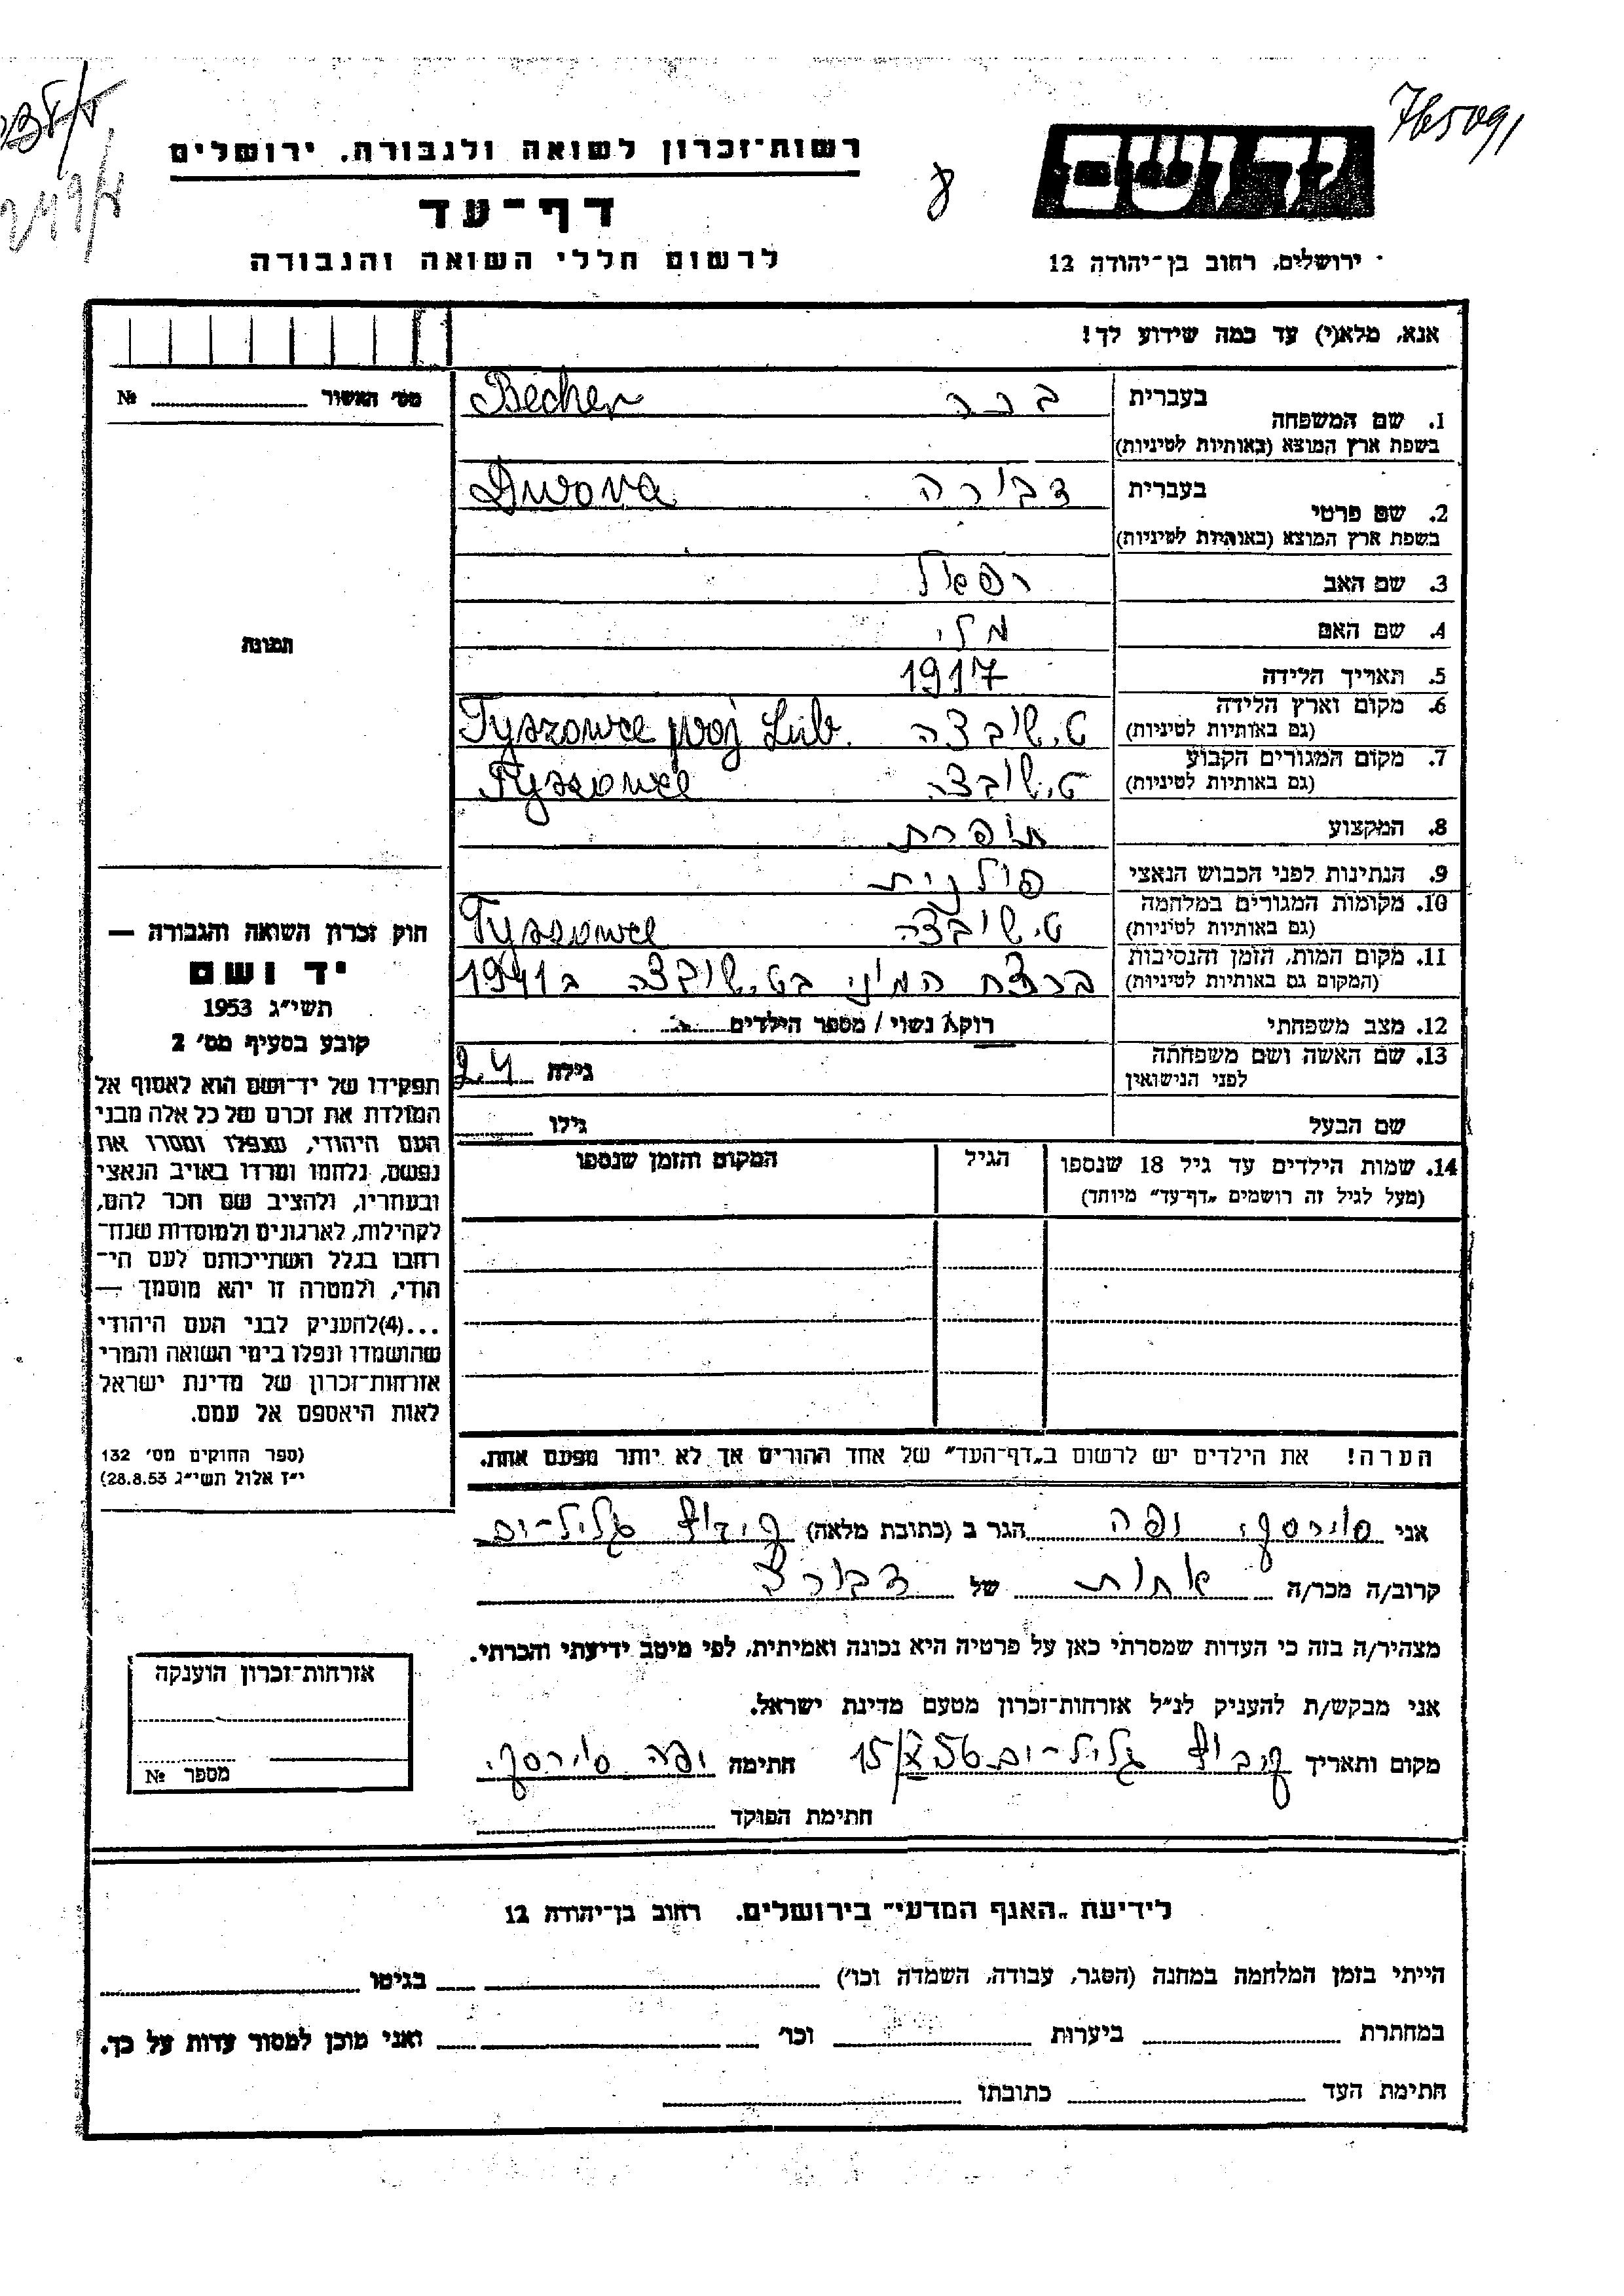 765091
רשות־זכרון לשואה ולגבורה, ירושלים
ידושם
8
דף־עד
לרשום חללי השואה והגבורה
ירושלים, רחוב בן־יהודה 12
אנא, מלא(י) עד כמה שידוע לך!
מס׳ האשור № ________
1. שם המשפחה בעברית ברה Becher
בשפת ארץ המוצא (באותיות לטיניות)
2. שם פרטי בעברית דבורה Dwora
בשפת ארץ המוצא (באותיות לטיניות)
3. שם האב רפאל
4. שם האם מלי
תמונה
5. תאריך הלידה 1917
6. מקום וארץ הלידה (גם באותיות לטיניות) טישובצה Tyszowce woj Lub.
7. מקום המגורים הקבוע (גם באותיות לטיניות) טישובצה Tyszowce
8. המקצוע תופרת
9. הנתינות לפני הכבוש הנאצי פולנית
10. מקומות המגורים במלחמה (גם באותיות לטיניות) טישובצה Tyszowce
11. מקום המות, הזמן והנסיבות (המקום גם באותיות לטיניות) ברצח המוני בטישובצה ב 1941
12. מצב משפחתי רוקא נשוי / מספר הילדים
13. שם האשה ושם משפחתה לפני הנישואין גילה 24
שם הבעל גילו
14. שמות הילדים עד גיל 18 שנספו הגיל המקום והזמן שנספו
(מעל לגיל זה רושמים „דף־עד״ מיוחד)
הערה! את הילדים יש לרשום ב„דף־העד״ של אחד ההורים אך לא יותר מפעם אחת.
חוק זכרון השואה והגבורה —
יד ושם
תשי״ג 1953
קובע בסעיף מס׳ 2
תפקידו של יד־ושם הוא לאסוף אל
המולדת את זכרם של כל אלה מבני
העם היהודי, שנפלו ומסרו את
נפשם, נלחמו ומרדו באויב הנאצי
ובעוזריו, ולהציב שם וזכר להם,
לקהילות, לארגונים ולמוסדות שנח־
רבו בגלל השתייכותם לעם הי־
הודי, ולמטרה זו יהא מוסמך —
...(4)להעניק לבני העם היהודי
שהושמדו ונפלו בימי השואה והמרי
אזרחות־זכרון של מדינת ישראל
לאות היאספם אל עמם.
(ספר החוקים מס׳ 132
י״ז אלול תשי״ג 28.8.53)
אני יפה הגר ב (כתובת מלאה) קיבוץ גליל־ים
קרוב/ה מכר/ה אחות של דבורה
מצהיר/ה בזה כי העדות שמסרתי כאן על פרטיה היא נכונה ואמיתית, לפי מיטב ידיעתי והכרתי.
אני מבקש/ת להעניק לנ״ל אזרחות־זכרון מטעם מדינת ישראל.
מקום ותאריך קיבוץ גליל־ים 15/X 56 חתימה יפה
חתימת הפוקד
אזרחות־זכרון הוענקה
מספר №
לידיעת „האגף המדעי״ בירושלים, רחוב בן־יהודה 12
הייתי בזמן המלחמה במחנה (הסגר, עבודה, השמדה וכו׳) בגיטו
במחתרת ביערות וכו׳ ואני מוכן למסור עדות על כך.
חתימת העד כתובתו